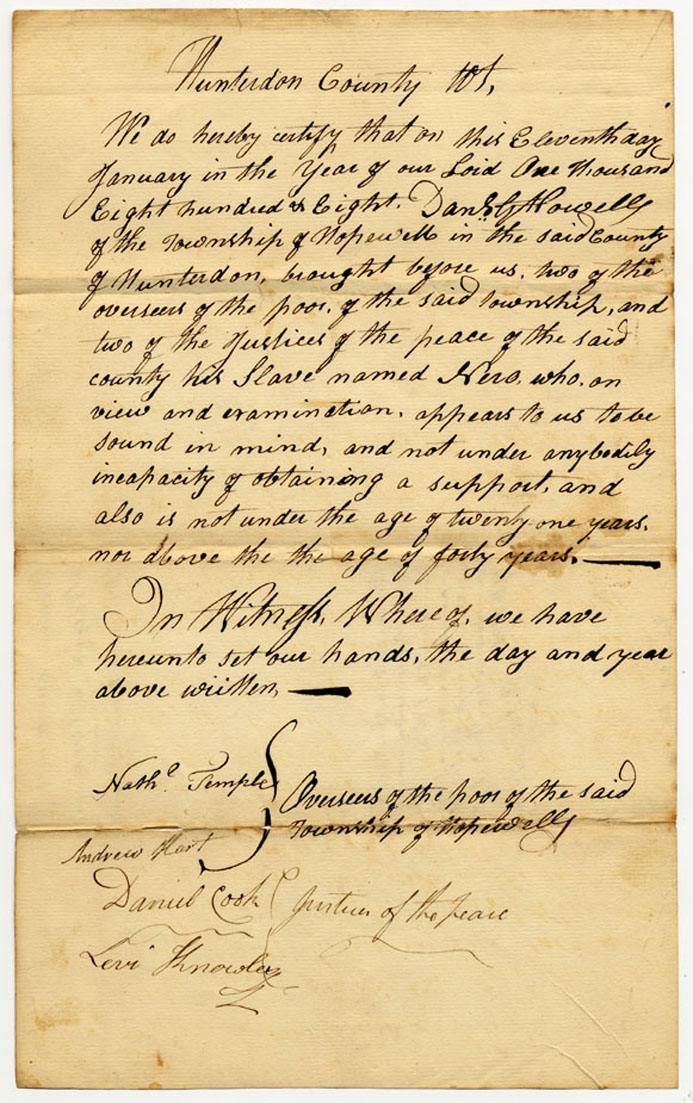 Hunterdon County to wit,
We do hereby certify that on this Eleventh day
January in the Year of our Lord One Thousand
Eight hundred & Eight. Danl. G Howell
of the Township of Hopewell in the said County
of Hunterdon, brought before us, two of the
overseers of the poor, of the said township, and
two of the Justices of the peace of the said
county his Slave named Nero, who, on
view and examination, appears to us to be
sound in mind, and not under any bodily
incapacity of obtaining a support, and
also is not under the age of twenty one years,
nor above the the age of forty years.
In Witness, Where of, we have
hereunto set our hands, the day and year
above written,
Nathl. Temple
Overseers of the poor of the said
Township of Hopewell
Andrew Hart
Daniel Cook Justices of the peace
Levi Knowles